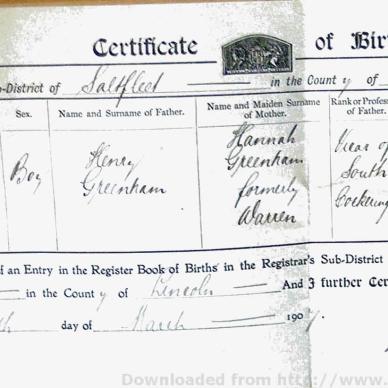 Certificate of Bir
b-District of Saltfleet in the County of
Sex.
Name and Surname of Father.
Name and Maiden Surname
of Mother.
Rank or Profes
of Father.
Boy
Henry
Greenham
Hannah
Greenham
formerly
Warren
of
South
Cockering
f an Entry in the Register Book of Births in the Registrar's Sub-District
in the County of Lincoln And 3 further Cer
th day of March 190
Downloaded from http://www.